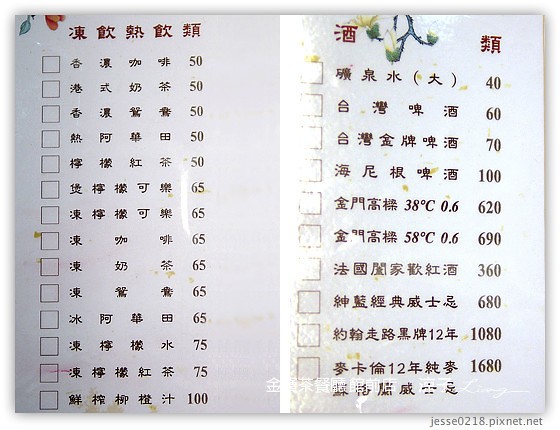 凍飲熱飲類
香濃咖啡 50
港式奶茶 50
香濃鴛鴦 50
熱阿華田 50
檸檬紅茶 50
煲檸檬可樂 65
凍檸檬可樂 65
凍咖啡 65
凍奶茶 65
凍鴛鴦 65
冰阿華田 65
凍檸檬水 75
凍檸檬紅茶 75
鮮榨柳橙汁 100
酒類
礦泉水(大) 40
台灣啤酒 60
台灣金牌啤酒 70
海尼根啤酒 100
金門高樑 38°C 0.6 620
金門高樑 58°C 0.6 690
法國閣家歡紅酒 360
紳藍經典威士忌 680
約翰走路黑牌12年 1080
麥卡倫12年純麥 1680
蘇格蘭威士忌
jesse0218.pixnet.net